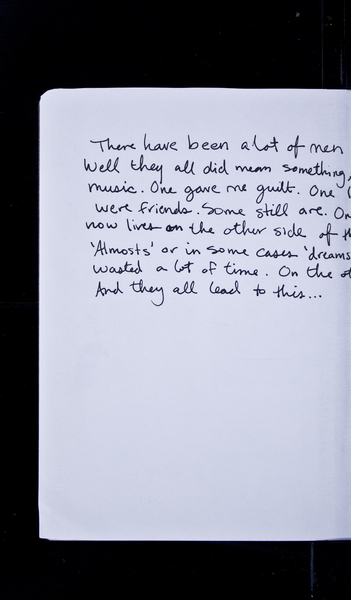 There have been a lot of men
Well they all did mean something,
music. One gave me guilt. One
were friends. Some still are.
now lives on the other side of
'Almosts' or in some cases 'dreams
wasted a lot of time. On the
And they all lead to this...